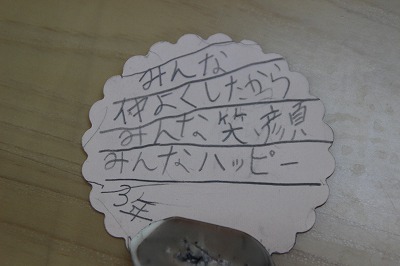 みんな
仲よくしたから
みんな笑顔
みんなハッピー
3年